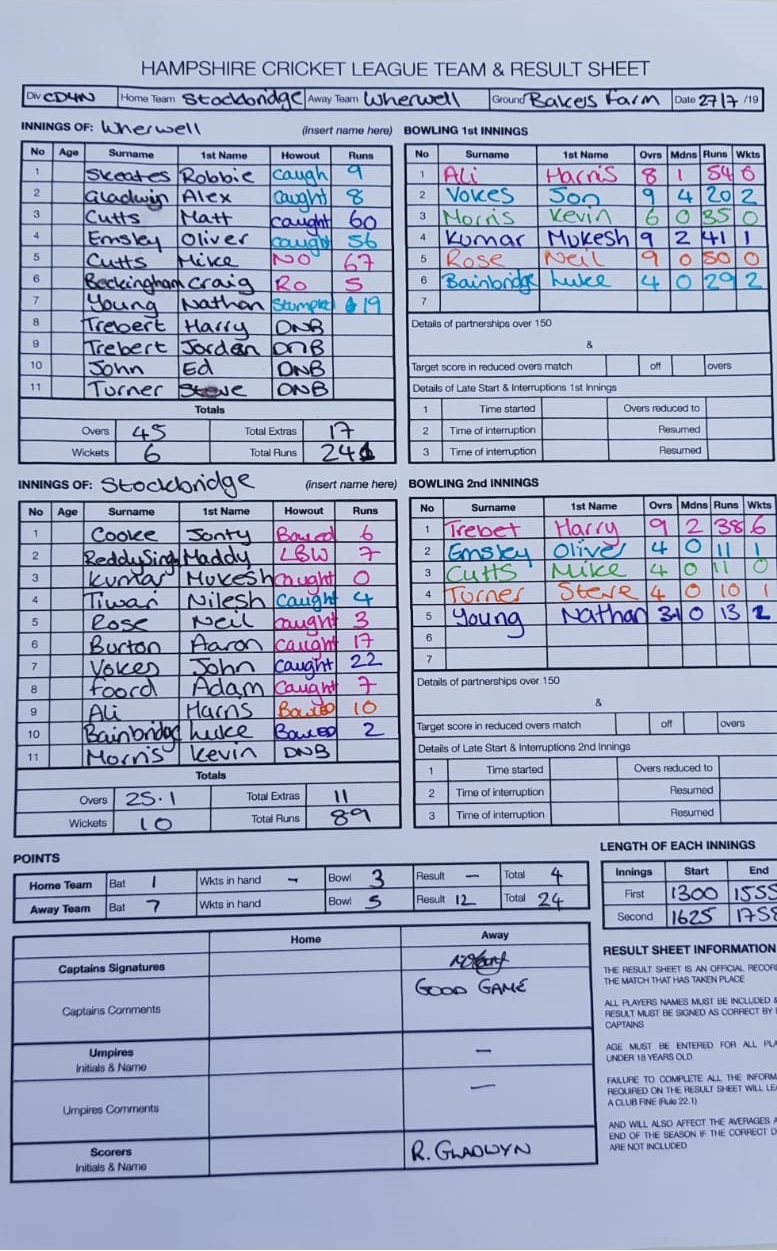 HAMPSHIRE CRICKET LEAGUE TEAM & RESULT SHEET
Div CD4N Home Team Stockbridge Away Team Wherwell Ground Bakers Farm Date 27/7 /19
INNINGS OF: Wherwell (insert name here)
No Age Surname 1st Name Howout Runs
1 Skeates Robbie Caugh 9
2 Gladwin Alex Caught 8
3 Cutts Matt caught 60
4 Emsley Oliver caught 56
5 Cutts Mike NO 67
6 Beckingham Craig RO 5
7 Young Nathan Stumped 19
8 Trebert Harry DNB
9 Trebert Jordan DNB
10 John Ed DNB
11 Turner Steve DNB
Totals
Overs 45 Total Extras 17
Wickets 6 Total Runs 241
BOWLING 1ST INNINGS
No Surname 1st Name Ovrs Mdns Runs Wkts
1 Ali Harris 8 1 54 0
2 Vokes Jon 9 4 20 2
3 Morris Kevin 6 0 35 0
4 Kumar Mukesh 9 2 41 1
5 Rose Neil 9 0 50 0
6 Bainbridge Luke 4 0 29 2
7
Details of partnerships over 150
&
Target score in reduced overs match off overs
Details of Late Start & Interruptions 1st Innings
1 Time started Overs reduced to
2 Time of interruption Resumed
3 Time of interruption Resumed
INNINGS OF: Stockbridge (insert name here)
No Age Surname 1st Name Howout Runs
1 Cooke Jonty Bowed 6
2 ReddySing Maddy LBW 7
3 Kumar Mukesh caught 0
4 Tiwari Nilesh Caught 4
5 Rose Neil caught 3
6 Burton Aaron caught 17
7 Vokes John caught 22
8 Foord Adam Caught 7
9 Ali Harris Bowled 10
10 Bainbridge Luke Bowled 2
11 Morris Kevin DNB
Totals
Overs 25.1 Total Extras 11
Wickets 10 Total Runs 89
BOWLING 2ND INNINGS
No Surname 1st Name Ovrs Mdns Runs Wkts
1 Trebet Harry 9 2 38 6
2 Emsley Oliver 4 0 11 1
3 Cutts Mike 4 0 11 0
4 Turner Steve 4 0 10 1
5 Young Nathan 0 13 2
6
7
Details of partnerships over 150
&
Target score in reduced overs match off overs
Details of Late Start & Interruptions 2nd Innings
1 Time started Overs reduced to
2 Time of interruption Resumed
3 Time of interruption Resumed
POINTS
Home Team Bat 1 Wkts in hand - Bowl 3 Result - Total 4
Away Team Bat 7 Wkts in hand Bowl 5 Result 12 Total 24
LENGTH OF EACH INNINGS
Innings Start End
First 1300 1555
Second 1625 1758
Home Away
Captains Signatures
Captains Comments GOOD GAME
Umpires
Initials & Name -
Umpires Comments -
Scorers
Initials & Name R. GLADWYN
RESULT SHEET INFORMATION
THE RESULT SHEET IS AN OFFICIAL RECOR
THE MATCH THAT HAS TAKEN PLACE
ALL PLAYERS NAMES MUST BE INCLUDED &
RESULT MUST BE SIGNED AS CORRECT BY
CAPTAINS
AGE MUST BE ENTERED FOR ALL PLA
UNDER 18 YEARS OLD
FAILURE TO COMPLETE ALL THE INFORM
REQUIRED ON THE RESULT SHEET WILL LEA
A CLUB FINE (Rule 22.1)
AND WILL ALSO AFFECT THE AVERAGES A
END OF THE SEASON IF THE CORRECT D
ARE NOT INCLUDED